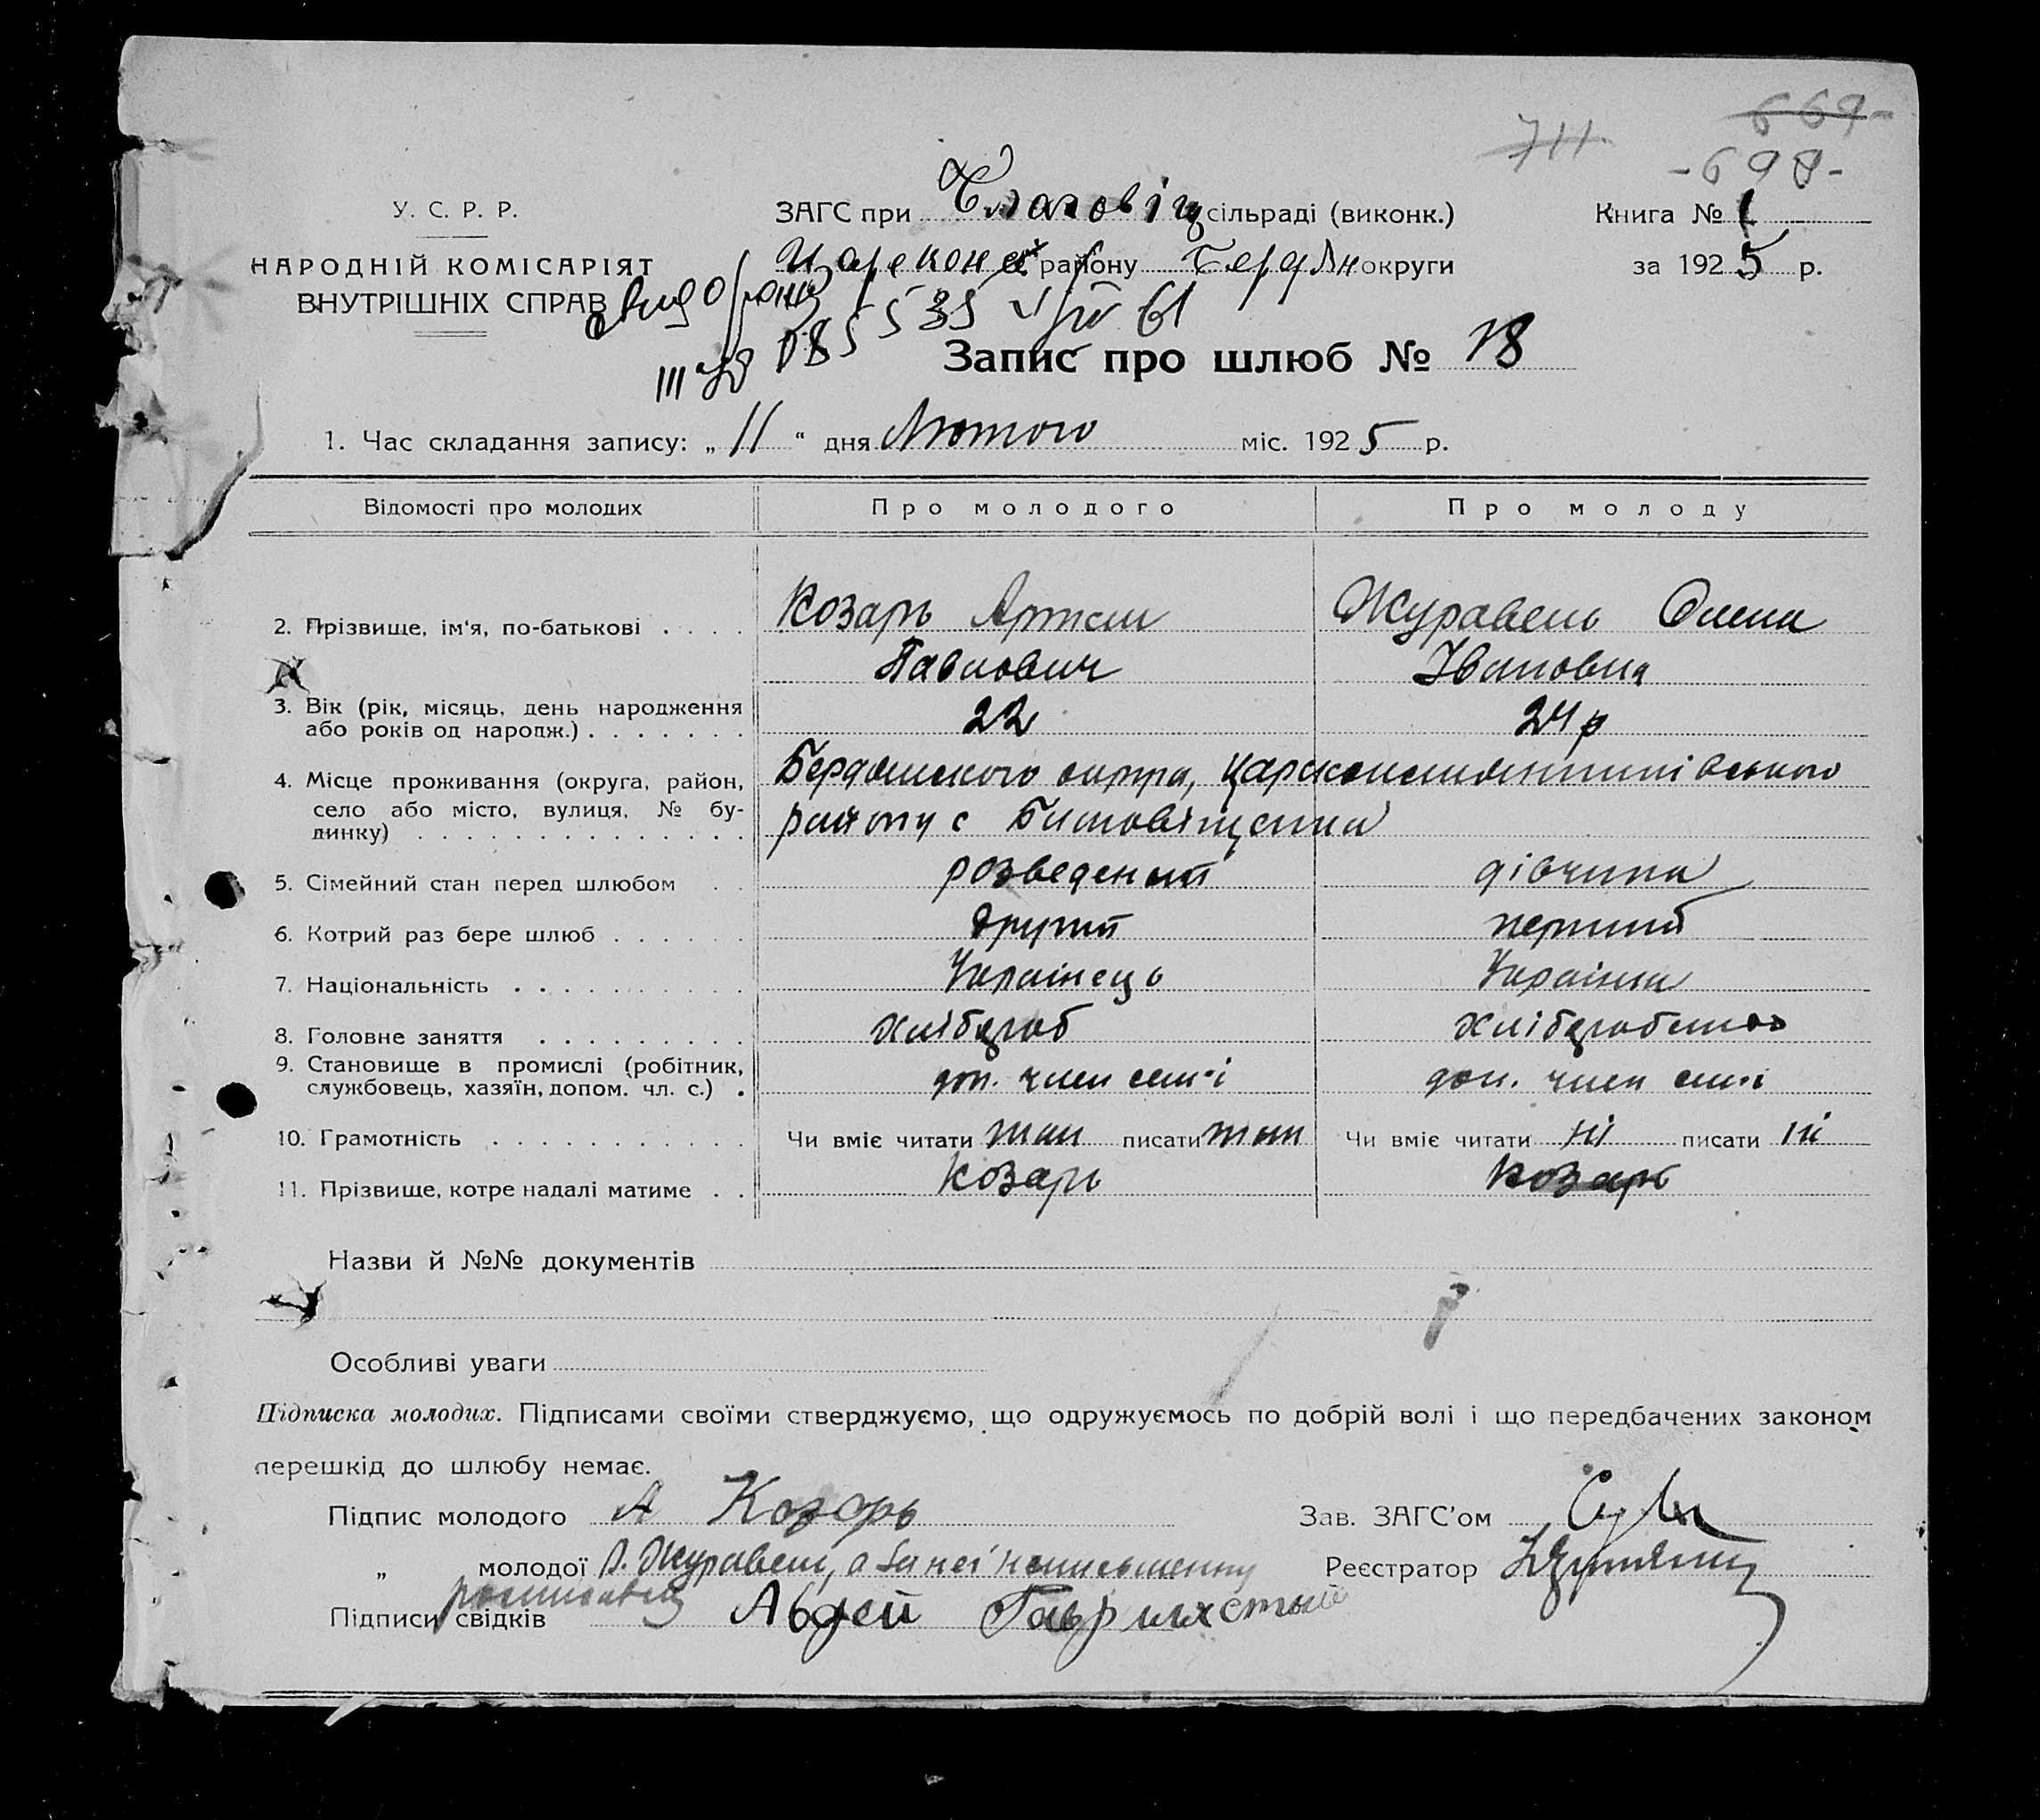 711
669-
-698-
У. С. Р. Р.
ЗАГС при Благовіщ сільраді (виконк.)
Книга № 1
НАРОДНІЙ КОМІСАРІЯТ
Царекон району Бердян округи
за 1925 р.
ВНУТРІШНІХ СПРАВ
085535
61
Запис про шлюб № 18
1. Час складання запису: „ 11 “ дня Лютого міс. 1925 р.
Відомості про молодих
Про молодого
Про молоду
2. Прізвище, ім'я, по-батькові . . . .
Козарь Артем
Журавель Олена
Павлович
Івановна
3. Вік (рік, місяць, день народження
або років од народж.) . . . . . . .
22
24 р
4. Місце проживання (округа, район,
село або місто, вулиця, № бу-
динку) . . . . . . . . . . . . . .
Бердянского округа, Царсконстянтинівського
району с Благовіщенка
5. Сімейний стан перед шлюбом . .
розведений
дівчина
6. Котрий раз бере шлюб . . . . . .
другий
перший
7. Національність . . . . . . . . . .
Українець
Українка
8. Головне заняття . . . . . . . . .
хлібороб
9. Становище в промислі (робітник,
службовець, хазяїн, допом. чл. с.) .
доп. член сем'ї
доп. член сем'ї
10. Грамотність . . . . . . . . . . .
Чи вміє читати так писати так
Чи вміє читати ні писати ні
11. Прізвище, котре надалі матиме . .
Козарь
Козарь
Назви й №№ документів
Особливі уваги
Підписка молодих. Підписами своїми стверджуємо, що одружуємось по добрій волі і що передбачених законом
перешкід до шлюбу немає.
Підпис молодого А Козарь
Зав. ЗАГС'ом
„ молодої О. Журавель, а за неї неписьменну
Реєстратор
росписавсь
Підписи свідків Авдей